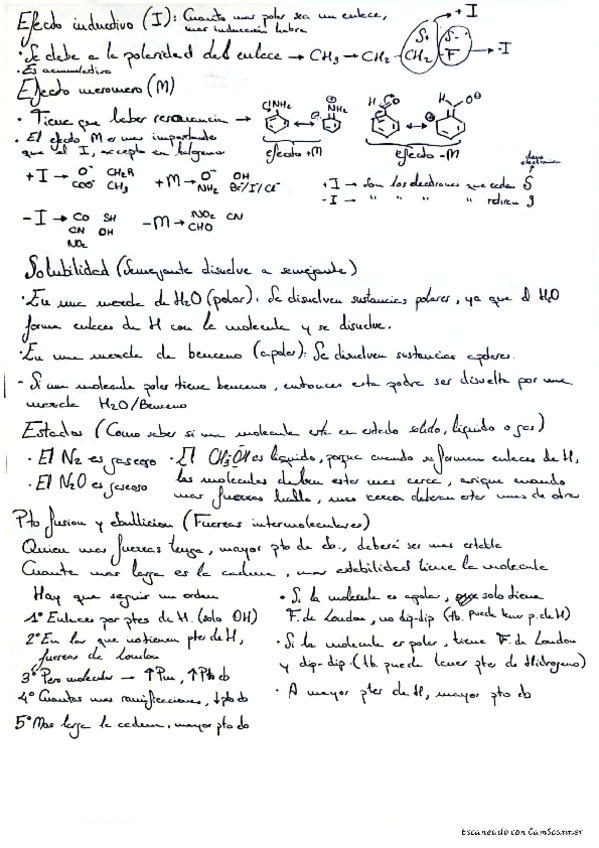 Efecto inductivo (I): Cuanto mas polar sea un enlace,
mas inducción habra
· Se debe a la polaridad del enlace → CH₃ → CH₂ - CH₂ - F
δ+ δ-
→ +I
→ -I
· Es acumulativo
Efecto mesomero (M)
· Tiene que haber resonancia →
NH₂ NH₂ H O H O⊖
efecto +M efecto -M
· El efecto M es mas importante
que el I, excepto en halogenos
+I → O⁻ CH₂R
COO⁻ CH₃
+M → O⁻ OH
NH₂ Br/I/Cl
+I → Son los electrones que ceden δ
-I → " " " " retiran
-I → CO SH
CN OH
NO₂
-M → NO₂ CN
CHO
Solubilidad (Semejante disuelve a semejante)
· En una mezcla de H2O (polar): Se disuelven sustancias polares, ya que el H2O
forma enlaces de H con la molecula y se disuelve.
· En una mezcla de benceno (apolar): Se disuelven sustancias apolares.
- Si una molecula polar tiene benceno, entonces esta podra ser disuelta por una
mezcla H2O/Benceno
Estados (Como saber si una molecula esta en estado solido, liquido o gas)
· El N2 es gaseoso · El CH3OH es liquido, porque cuando se forman enlaces de H,
· El N2O es gaseoso las moleculas deben estar mas cerca, asique cuando
mas fuerzas halla, mas cerca deberan estar unas de otras
Pto fusion y ebullicion (Fuerzas intermoleculares)
Quien mas fuerzas tenga, mayor pto de eb., deberá ser mas estable
Cuanto mas larga es la cadena, mas estabilidad tiene la molecula
Hay que seguir un orden
1º Enlaces por ptes de H. (solo OH)
2º En los que no tienen ptes de H,
fuerzas de London
3º Peso molecular → ↑Pm, ↑Pto eb
4º Cuantas mas ramificaciones, ↓pto eb
5º Mas larga la cadena, mayor pto eb
· Si la molecula es apolar, solo tiene
F. de London, no dip-dip (Tb. Puede tener p. de H)
· Si la molecula es polar, tiene F. de London
y dip-dip (Tb puede tener ptes de Hidrogeno)
· A mayor ptes de H, mayor pto eb
Escaneado con CamScanner